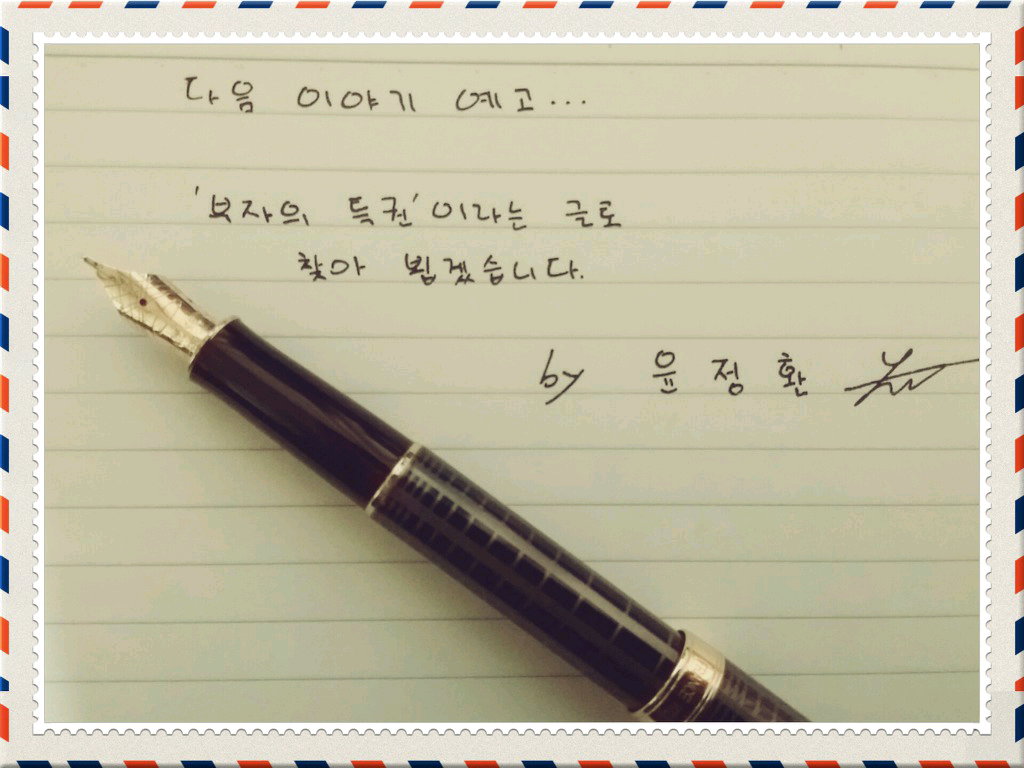 다음 이야기 예고...
'부자의 특권'이라는 글로
찾아 뵙겠습니다.
by 윤정환